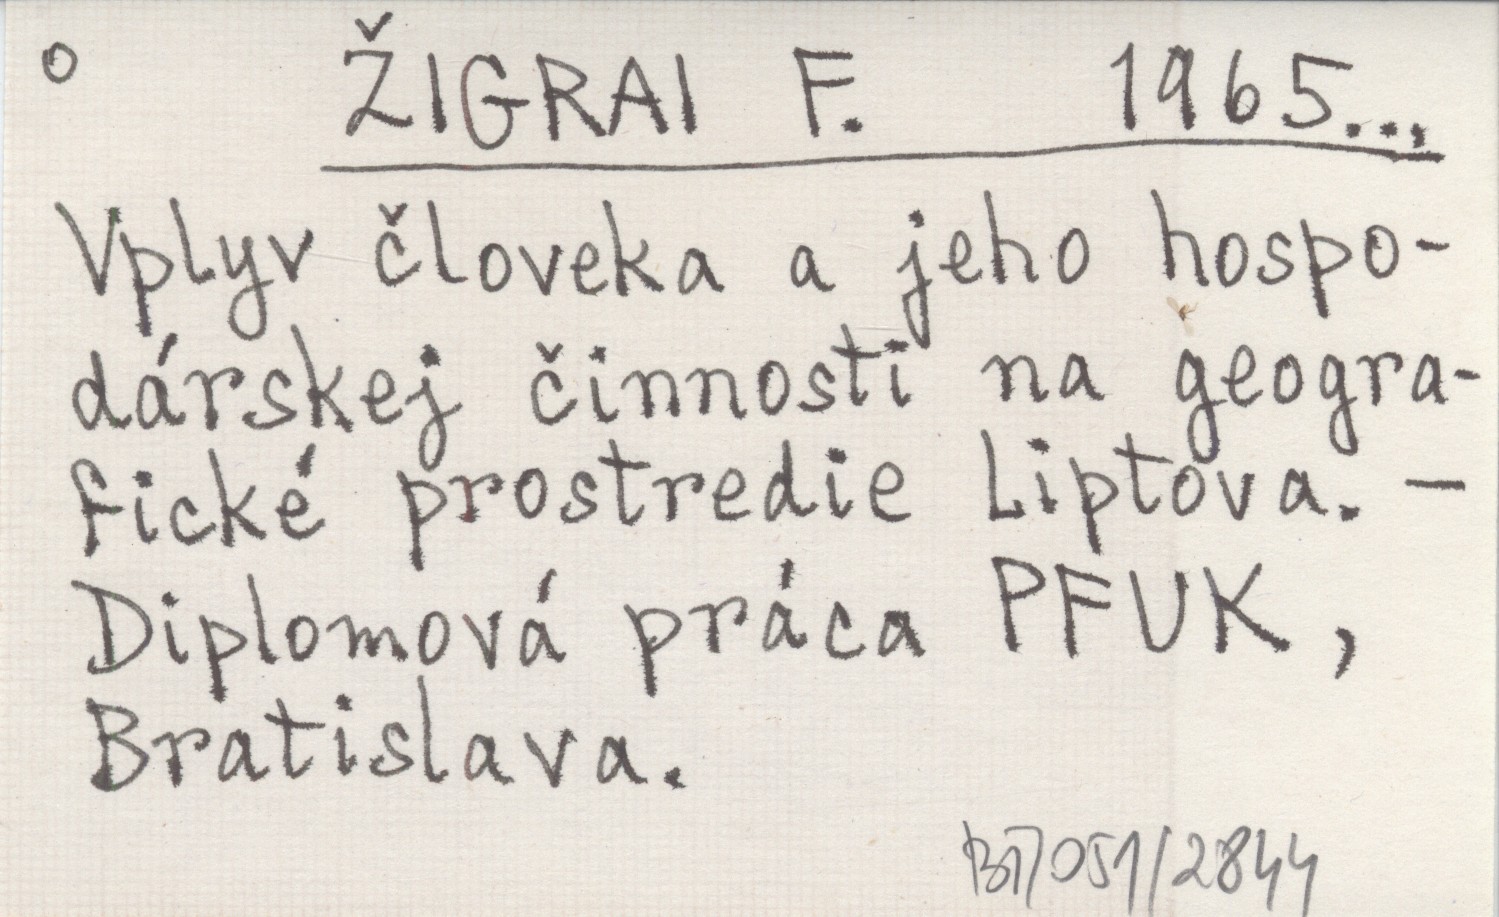 o ŽIGRAI F. 1965...
Vplyv človeka a jeho hospo-
dárskej činnosti na geogra-
fické prostredie Liptova. —
Diplomová práca PFUK,
Bratislava.
051/2844